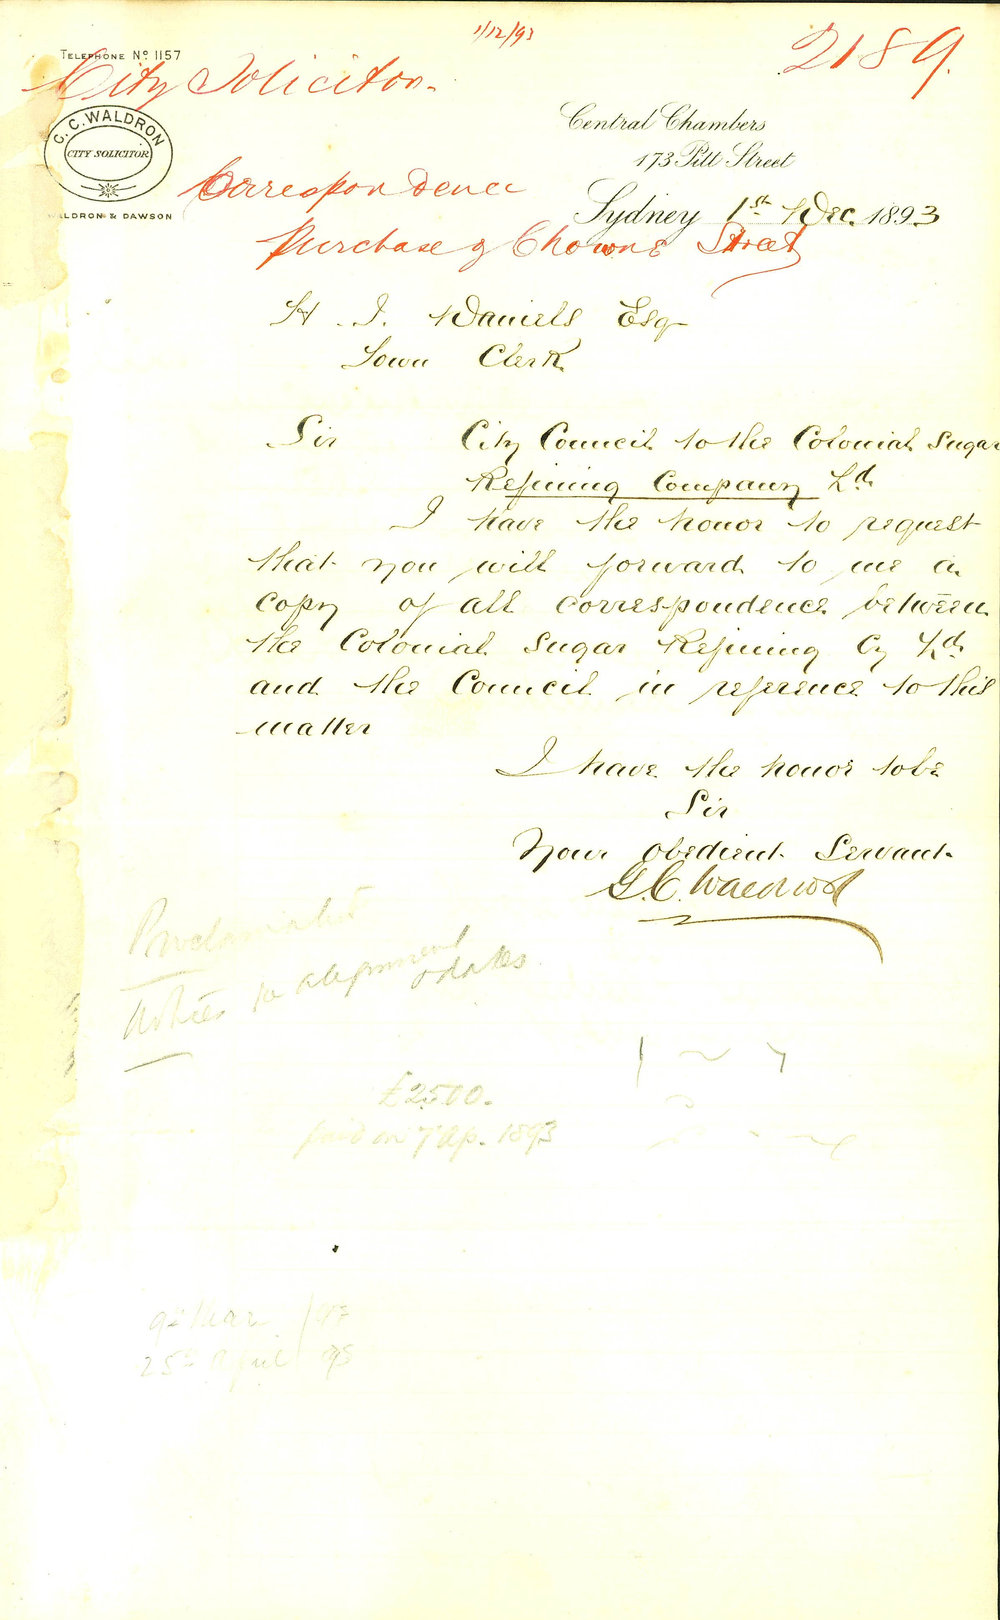 1/12/93
2189.
TELEPHONE No. 1157
City Solicitor.
G. C. WALDRON
CITY SOLICITOR
WALDRON & DAWSON
Central Chambers
173 Pitt Street
Correspondence
Sydney 1st Dec. 1893
Purchase of Chowne Street
H. J. Daniels Esq
Town Clerk
Sir City Council to the Colonial Sugar
Refining Company Ld
I have the honor to request
that you will forward to me a
copy of all correspondence between
the Colonial Sugar Refining Cy Ld
and the Council in reference to this
matter
I have the honor to be
Sir
Your obedient Servant
G. C. Waldron
Notices re alignment
& dates
£2500.
paid on 7 Ap. 1893
25th April 93